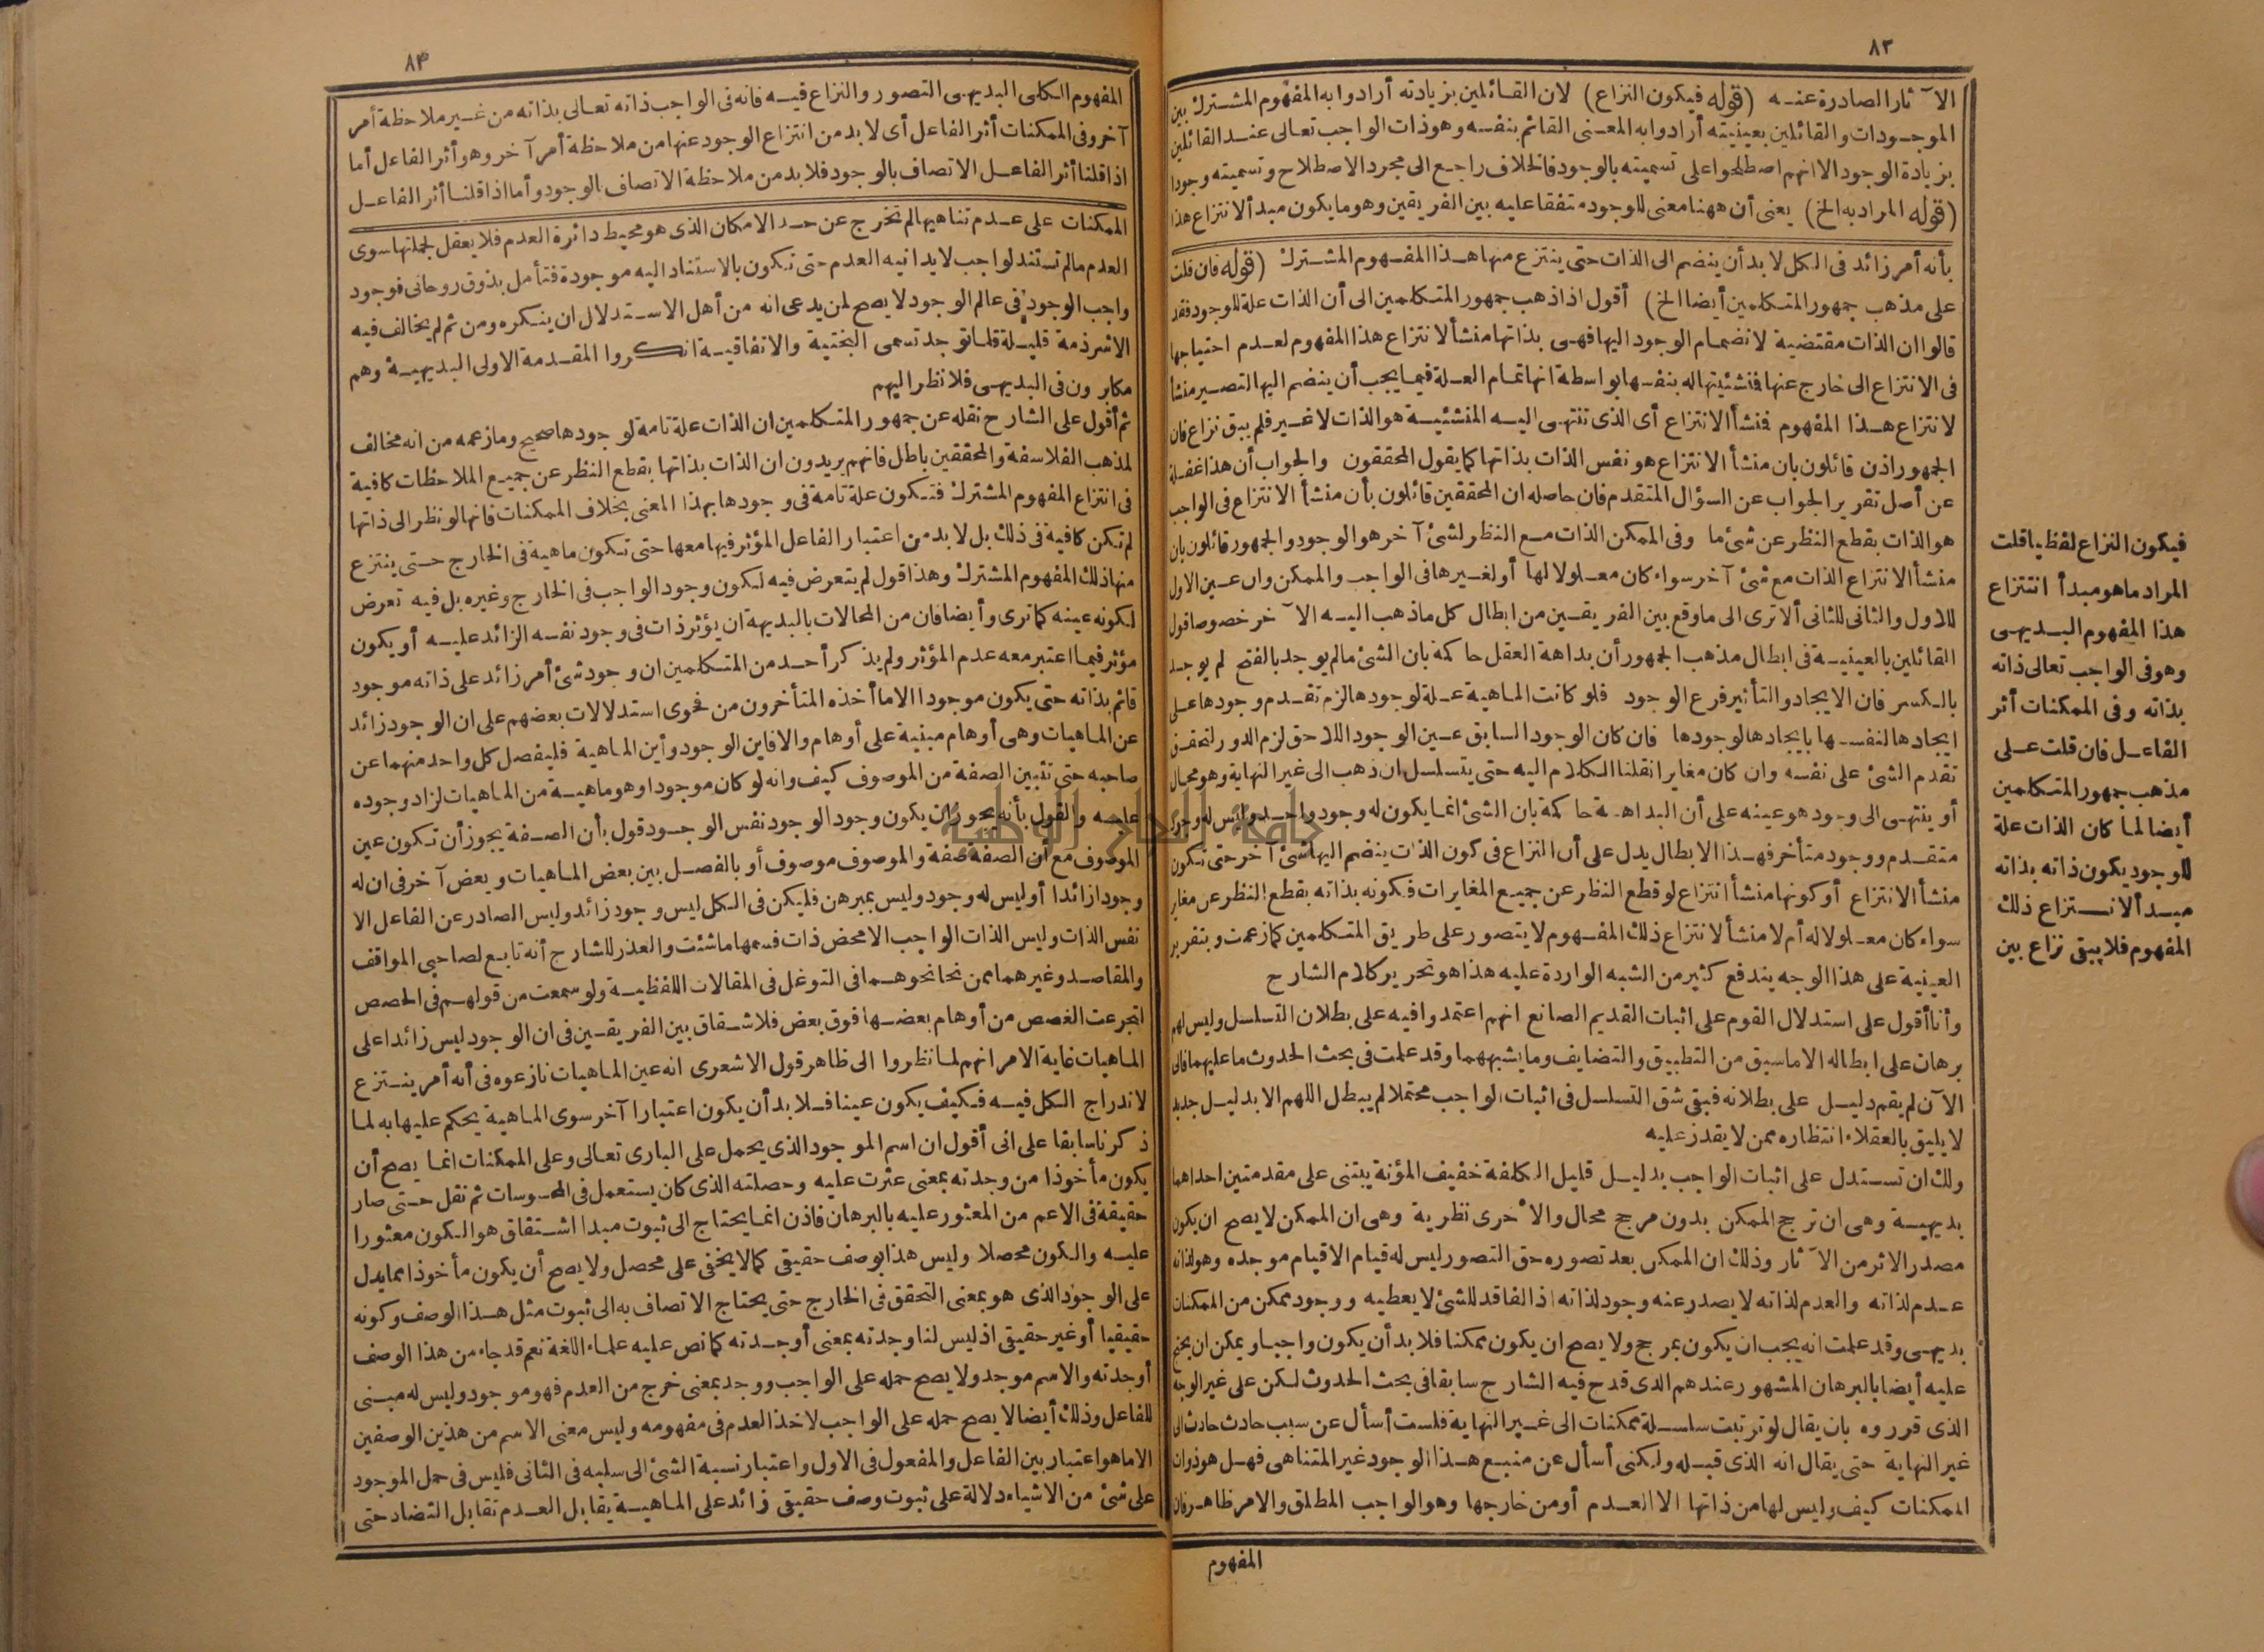 ٨٣
الآثار الصادرة عنه (قوله فيكون النزاع) لان القائلين بزيادته أرادوا به المفهوم المشترك بين
الموجودات والقائلين بعينيته أرادوا به المعنى القائم بنفسه وهو ذات الواجب تعالى عند القائلين
بزيادة الوجود الا انهم اصطلحوا على تسميته بالوجود فالخلاف راجع الى مجرد الاصطلاح وتسميته وجودا
(قوله المراد به الخ) يعنى أن ههنا معنى للوجود متفقا عليه بين الفريقين وهو ما يكون مبدأ لانتزاع هذا
بأنه أمر زائد فى الكل لا بد أن ينضم الى الذات حتى ينتزع منها هذا المفهوم المشترك (قوله فان قلت
على مذهب جمهور المتكلمين أيضا الخ) أقول اذ ذهب جمهور المتكلمين الى أن الذات علة للوجود فقد
قالوا ان الذات مقتضية لانضمام الوجود اليها فهى بذاتها منشأ لانتزاع هذا المفهوم لعدم احتياجها
فى الانتزاع الى خارج عنها فنشئيتها له بنفسها بواسطة انها تمام العلة فيما يجب أن ينضم اليها لتصير منشأ
لانتزاع هذا المفهوم فنشأ الانتزاع أى الذى تنتهى اليه المنشئية هو الذات لا غير فلم يبق نزاع فان
الجمهور اذن قائلون بان منشأ الانتزاع هو نفس الذات بذاتها كما يقول المحققون والجواب أن هذا غفلة
عن أصل تقرير الجواب عن السؤال المتقدم فان حاصله ان المحققين قائلون بأن منشأ الانتزاع فى الواجب
هو الذات بقطع النظر عن شئ ما وفى الممكن الذات مع النظر لشئ آخر هو الوجود والجمهور قائلون بان
منشأ الانتزاع الذات مع شئ آخر سواء كان معلولا لها أو لغيرها فى الواجب والممكن وان عين الاول
للاول والثانى للثانى ألا ترى الى ما وقع بين الفريقين من ابطال كل ما ذهب اليه الآخر خصوصا قول
القائلين بالعينية فى ابطال مذهب الجمهور أن بداهة العقل حاكمة بان الشئ ما لم يوجد بالفتح لم يوجد
بالكسر فان الايجاد والتأثير فرع الوجود فلو كانت الماهية علة لوجودها لزم تقدم وجودها على
ايجادها لنفسها بايجادها لوجودها فان كان الوجود السابق عين الوجود اللاحق لزم الدور لتحقق
تقدم الشئ على نفسه وان كان مغايرا نقلنا الكلام اليه حتى يتسلسل ان ذهب الى غير النهاية وهو محال
أو ينتهى الى وجود هو عينه على أن البداهة حاكمة بان الشئ انما يكون له وجود واحد وليس له وجود
متقدم ووجود متأخر فهذا الابطال يدل على أن النزاع فى كون الذات ينضم اليها شئ آخر حتى تكون
منشأ الانتزاع أو كونها منشأ انتزاع لو قطع النظر عن جميع المغايرات فكونه بذاته بقطع النظر عن مغاير
سواء كان معلولا له أم لا منشأ لانتزاع ذلك المفهوم لا يتصور على طريق المتكلمين كما زعمت وبتقرير
العينية على هذا الوجه يندفع كثير من الشبه الواردة عليه هذا هو تحرير كلام الشارح
وأنا أقول على استدلال القوم على اثبات القديم الصانع انهم اعتمدوا فيه على بطلان التسلسل وليس لهم
برهان على ابطاله الا ما سبق من التطبيق والتضايف وما يشبههما وقد علمت فى بحث الحدوث ما عليهما فالى
الآن لم يقم دليل على بطلانه فبقى شق التسلسل فى اثبات الواجب محتملا لم يبطل اللهم الا بدليل جديد
لا يليق بالعقلاء انتظاره ممن لا يقدر عليه
ولك ان تستدل على اثبات الواجب بدليل قليل الكلفة خفيف المؤنة يبتنى على مقدمتين احداهما
بديهية وهى ان ترجح الممكن بدون مرجح محال والأخرى نظرية وهى ان الممكن لا يصح ان يكون
مصدر الاثر من الآثار وذلك ان الممكن بعد تصوره حق التصور ليس له قيام الا قيام موجده وهو لذاته
عدم لذاته والعدم لذاته لا يصدر عنه وجود لذاته اذ الفاقد للشئ لا يعطيه ووجود ممكن من الممكنات
بديهى وقد علمت انه يجب ان يكون بمرجح ولا يصح ان يكون ممكنا فلا بد أن يكون واجبا ويمكن ان يحتج
عليه أيضا بالبرهان المشهور عندهم الذى قدح فيه الشارح سابقا فى بحث الحدوث لكن على غير الوجه
الذى قرروه بان يقال لو ترتبت سلسلة ممكنات الى غير النهاية فلست أسأل عن سبب حادث حادث الى
غير النهاية حتى يقال انه الذى قبله ولكنى أسأل عن منبع هذا الوجود غير المتناهى فهل هو ذوات
الممكنات كيف وليس لها من ذاتها الا العدم أو من خارجها وهو الواجب المطلق والامر ظاهر فان
المفهوم
فيكون النزاع لفظيا قلت
المراد ما هو مبدأ انتزاع
هذا المفهوم البديهى
وهو فى الواجب تعالى ذاته
بذاته وفى الممكنات أثر
الفاعل فان قلت على
مذهب جمهور المتكلمين
أيضا لما كان الذات علة
للوجود يكون ذاته بذاته
مبدأ لانتزاع ذلك
المفهوم فلا يبقى نزاع بين
٨٤
المفهوم الكلى البديهى التصور والنزاع فيه فانه فى الواجب ذاته تعالى بذاته من غير ملاحظة أمر
آخر وفى الممكنات أثر الفاعل أى لا بد من انتزاع الوجود عنها من ملاحظة أمر آخر وهو أثر الفاعل أما
اذا قلنا أثر الفاعل الاتصاف بالوجود فلا بد من ملاحظة الاتصاف بالوجود وأما اذا قلنا أثر الفاعل
الممكنات على عدم تناهيها لم تخرج عن حد الامكان الذى هو محيط دائرة العدم فلا يعقل لجملتها سوى
العدم ما لم تستند لواجب لا يدانيه العدم حتى تكون بالاستناد اليه موجودة فتأمل بذوق روحانى فوجود
واجب الوجود فى عالم الوجود لا يصح لمن يدعى انه من أهل الاستدلال ان ينكره ومن ثم لم يخالف فيه
الا شرذمة قليلة قلما توجد تسمى البختية والاتفاقية انكروا المقدمة الاولى البديهية وهم
مكابرون فى البديهى فلا نظر اليهم
ثم أقول على الشارح نقله عن جمهور المتكلمين ان الذات علة تامة لوجودها صحيح وما زعمه من انه مخالف
لمذهب الفلاسفة والمحققين باطل فانهم يريدون ان الذات بذاتها بقطع النظر عن جميع الملاحظات كافية
فى انتزاع المفهوم المشترك فتكون علة تامة فى وجودها بهذا المعنى بخلاف الممكنات فانها لو نظر الى ذاتها
لم تكن كافية فى ذلك بل لا بد من اعتبار الفاعل المؤثر فيها معها حتى تكون ماهية فى الخارج حتى ينتزع
منها ذلك المفهوم المشترك وهذا قول لم يتعرض فيه لكون وجود الواجب فى الخارج وغيره بل فيه تعرض
لكونه عينه كما ترى وأيضا فان من المحالات بالبديهة ان يؤثر ذات فى وجود نفسه الزائد عليه أو يكون
مؤثر فيما اعتبر معه عدم المؤثر ولم يذكر أحد من المتكلمين ان وجود شئ أمر زائد على ذاته موجود
قائم بذاته حتى يكون موجودا الا ما أخذه المتأخرون من فحوى استدلالات بعضهم على ان الوجود زائد
عن الماهيات وهى أوهام مبنية على أوهام والا فاين الوجود وأين الماهية فليفصل كل واحد منهما عن
صاحبه حتى تتبين الصفة من الموصوف كيف وانه لو كان موجودا وهو ماهية من الماهيات لزاد وجوده
عليه والقول بأنه يجوز ان يكون وجود الوجود نفس الوجود قول بأن الصفة يجوز أن تكون عين
الموصوف مع أن الصفة صفة والموصوف موصوف أو بالفصل بين بعض الماهيات وبعض آخر فى ان له
وجودا زائدا أو ليس له وجود وليس بمبرهن فليكن فى الكل ليس وجود زائد وليس الصادر عن الفاعل الا
نفس الذات وليس الذات الواجب الا محض ذات فسمها ما شئت والعذر للشارح أنه تابع لصاحبى المواقف
والمقاصد وغيرهما ممن نحا نحوهما فى التوغل فى المقالات اللفظية ولو سمعت من قولهم فى الحصص
لتجرعت الغصص من أوهام بعضها فوق بعض فلا شقاق بين الفريقين فى ان الوجود ليس زائدا على
الماهيات غاية الامر انهم لما نظروا الى ظاهر قول الاشعرى انه عين الماهيات نازعوه فى أنه أمر ينتزع
لاندراج الكل فيه فكيف يكون عينا فلا بد أن يكون اعتبارا آخر سوى الماهية يحكم عليها به لما
ذكرنا سابقا على انى أقول ان اسم الموجود الذى يحمل على البارى تعالى وعلى الممكنات انما يصح أن
يكون مأخوذا من وجدته بمعنى عثرت عليه وحصلته الذى كان يستعمل فى المحسوسات ثم نقل حتى صار
حقيقة فى الاعم من المعثور عليه بالبرهان فاذن انما يحتاج الى ثبوت مبدا اشتقاق هو الكون معثورا
عليه والكون محصلا وليس هذا بوصف حقيقى كما لا يخفى على محصل ولا يصح أن يكون مأخوذا مما يدل
على الوجود الذى هو بمعنى التحقق فى الخارج حتى يحتاج الاتصاف به الى ثبوت مثل هذا الوصف وكونه
حقيقيا أو غير حقيقى اذ ليس لنا وجدته بمعنى أوجدته كما نص عليه علماء اللغة نعم قد جاء من هذا الوصف
أوجدته والاسم موجد ولا يصح حمله على الواجب ووجد بمعنى خرج من العدم فهو موجود وليس له مبنى
للفاعل وذلك أيضا لا يصح حمله على الواجب لاخذ العدم فى مفهومه وليس معنى الاسم من هذين الوصفين
الا ما هو اعتبار بين الفاعل والمفعول فى الاول واعتبار نسبة الشئ الى سلبه فى الثانى فليس فى حمل الموجود
على شئ من الاشياء دلالة على ثبوت وصف حقيقى زائد على الماهية يقابل العدم تقابل التضاد حتى